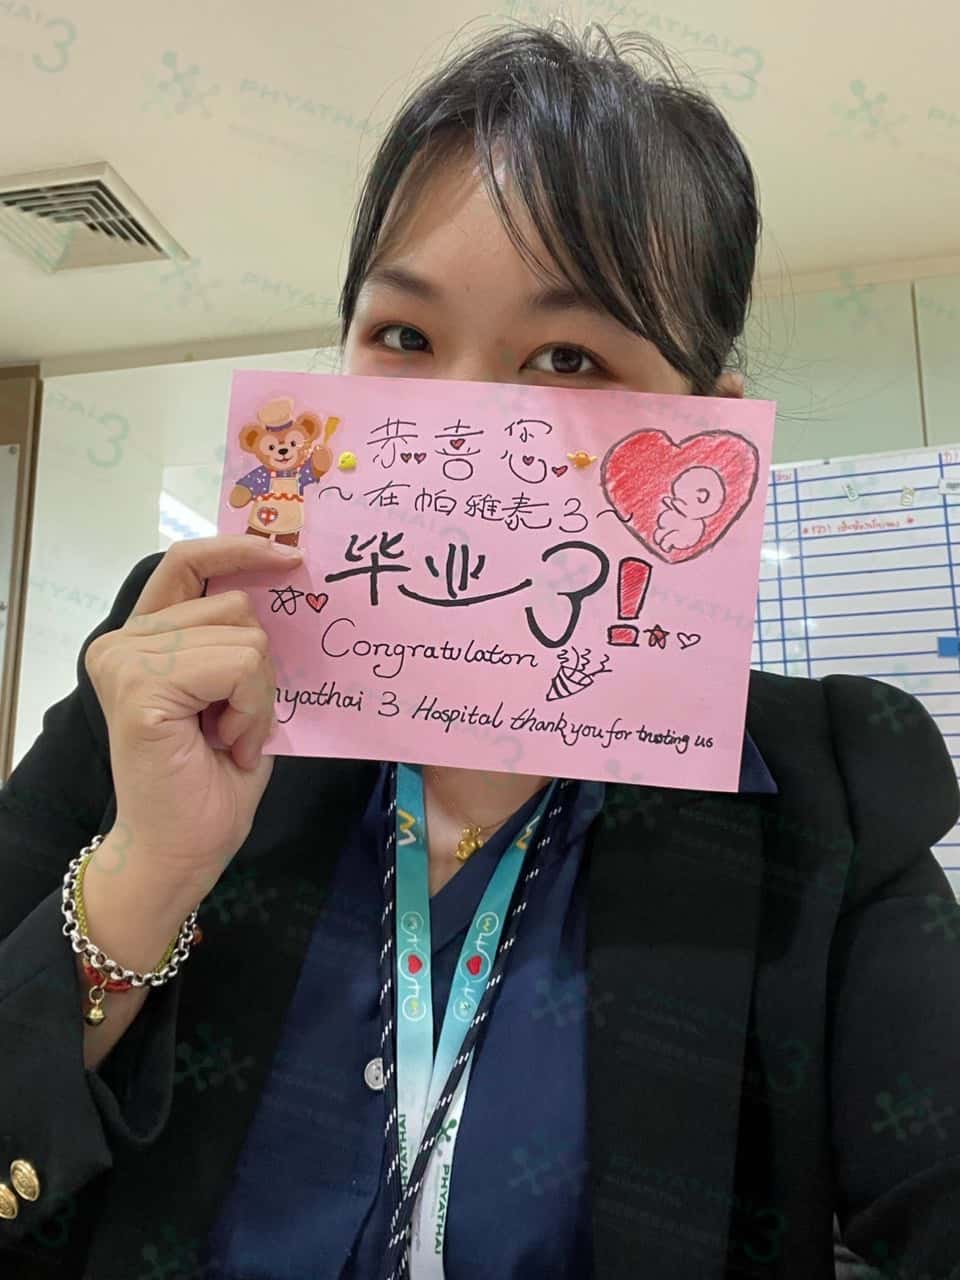 恭喜您
~在帕雅泰3~
毕业了!
Congratulaton
hyathai 3 Hospital thank you for trusting us
PHYATHAI
PHYATHAI
PHYATHAI 3